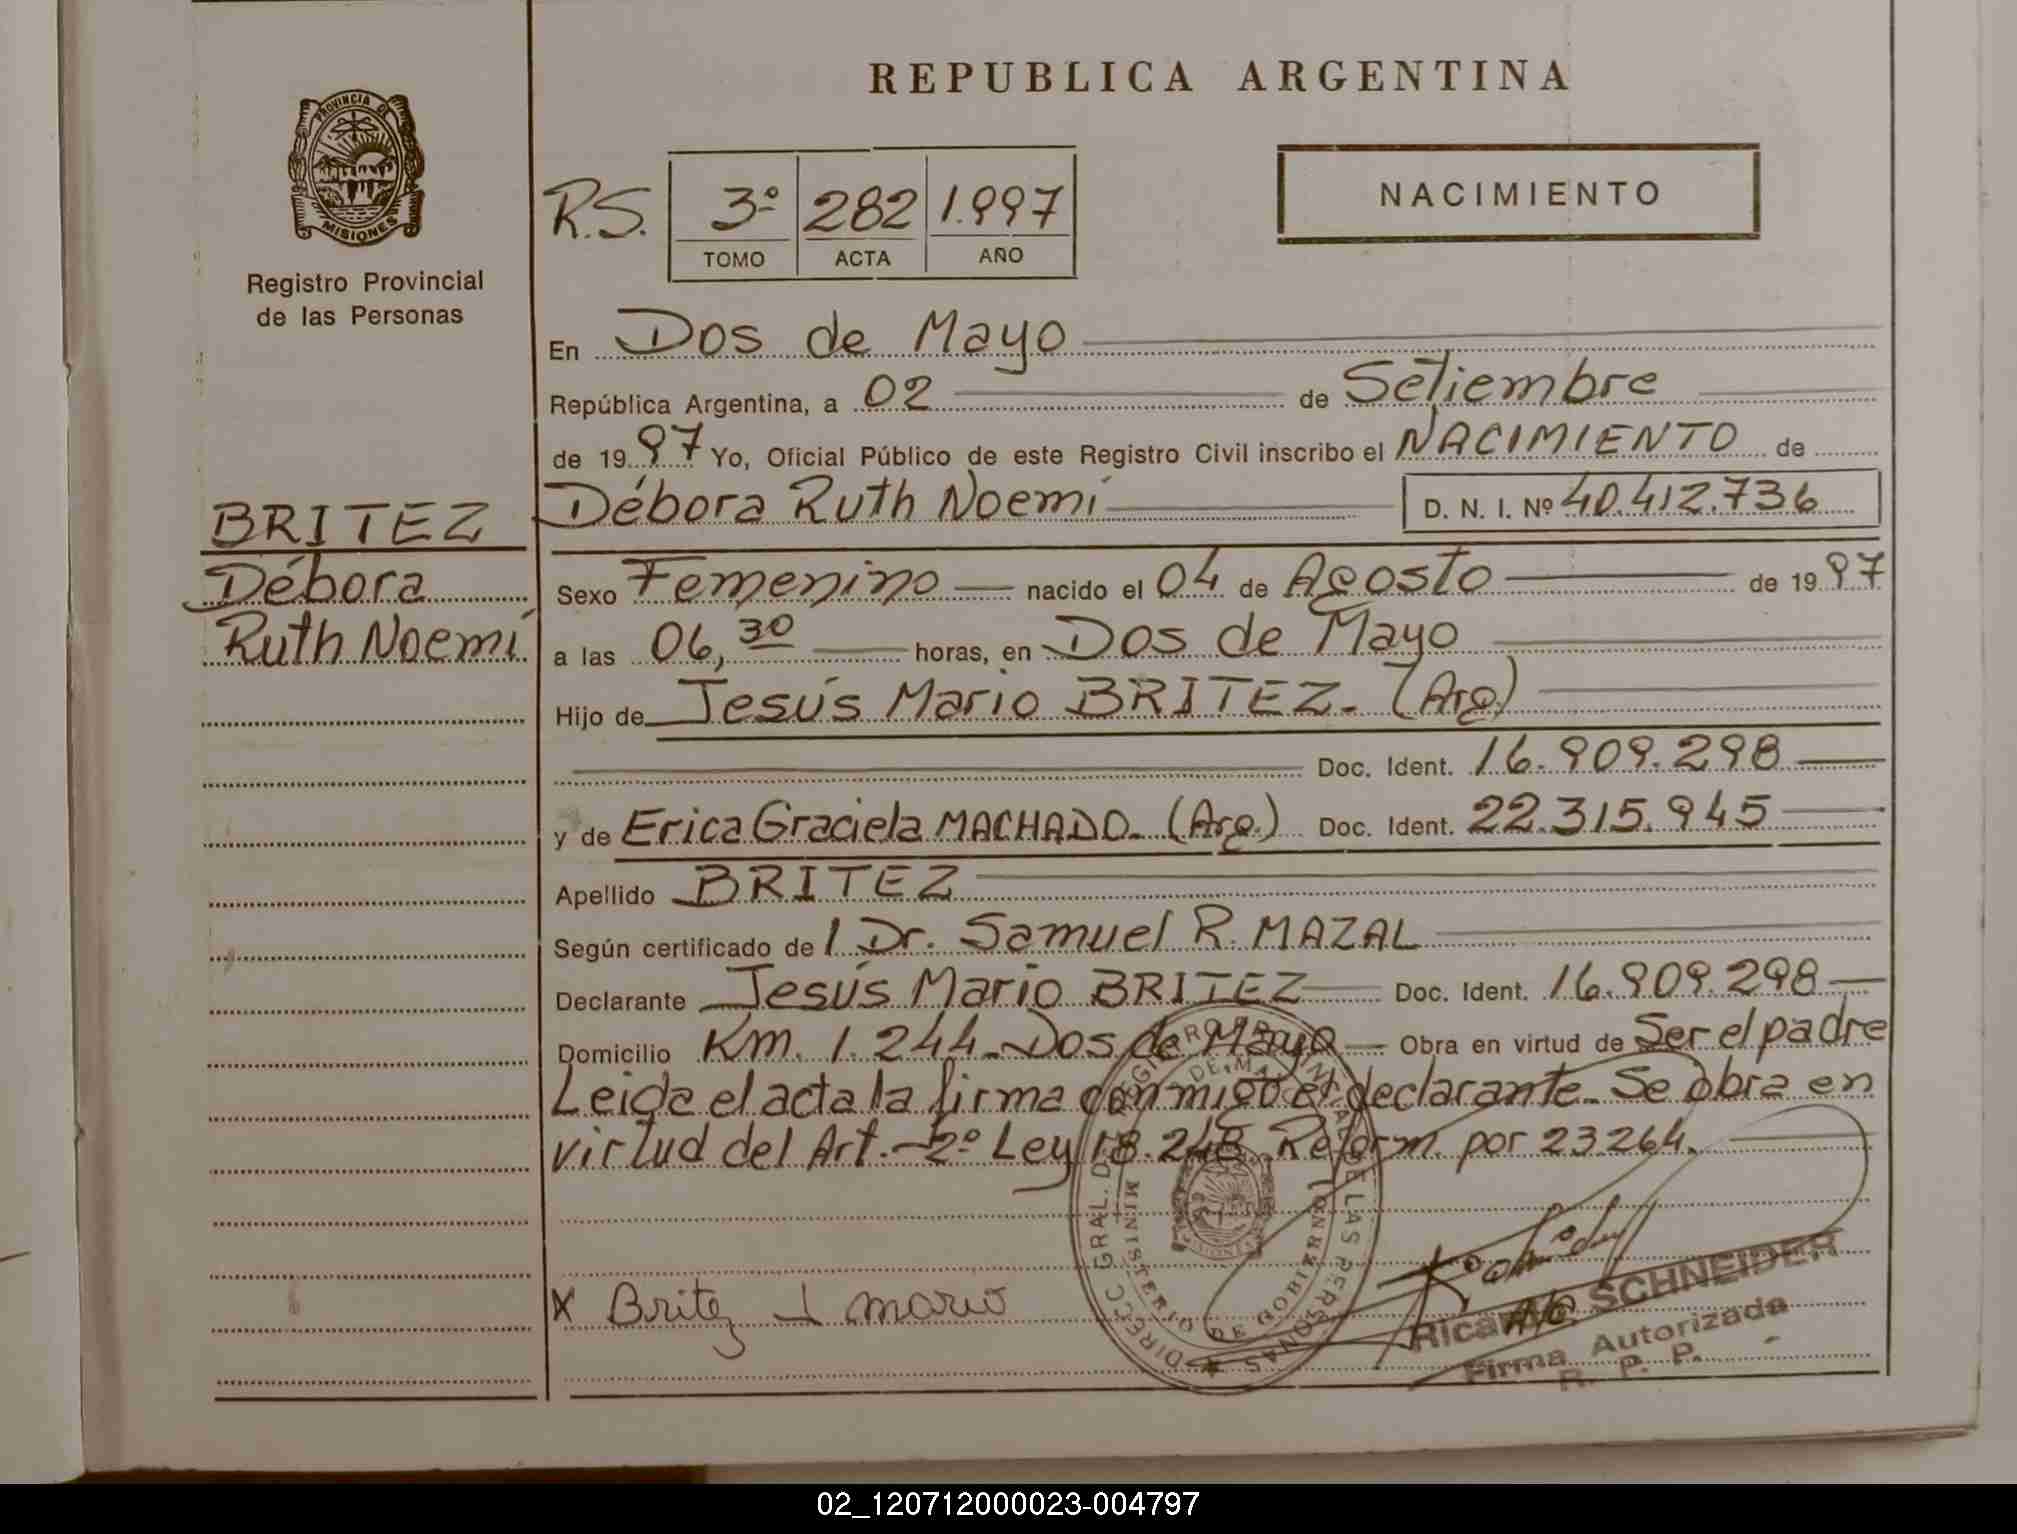 PROVINCIA DE
MISIONES
Registro Provincial
de las Personas
BRITEZ
Débora
Ruth Noemí
REPUBLICA ARGENTINA
R.S. 3º 282 1.997
TOMO ACTA AÑO
NACIMIENTO
En Dos de Mayo
República Argentina, a 02 de Setiembre
de 1997 Yo, Oficial Público de este Registro Civil inscribo el NACIMIENTO de
Débora Ruth Noemí D. N. I. Nº 40.412.736
Sexo Femenino nacido el 04 de Agosto de 1997
a las 06,30 horas, en Dos de Mayo
Hijo de Jesús Mario BRITEZ. (Arg)
Doc. Ident. 16.909.298
y de Erica Graciela MACHADO. (Arg.) Doc. Ident. 22.315.945
Apellido BRITEZ
Según certificado de / Dr. Samuel R. MAZAL
Declarante Jesús Mario BRITEZ Doc. Ident. 16.909.298
Domicilio Km. 1.244 - Dos de Mayo Obra en virtud de Ser el padre
Leida el acta la firma conmigo el declarante. Se obra en
virtud del Art. 2º Ley 18.248 Reform. por 23.264.
X Britez J mario
DIRECC GRAL. DEL REGISTRO PROVINCIAL DE LAS PERSONAS
MINISTERIO DE GOBIERNO
MISIONES
Ricardo SCHNEIDER
Firma Autorizada
R. P. P.
02_120712000023-004797